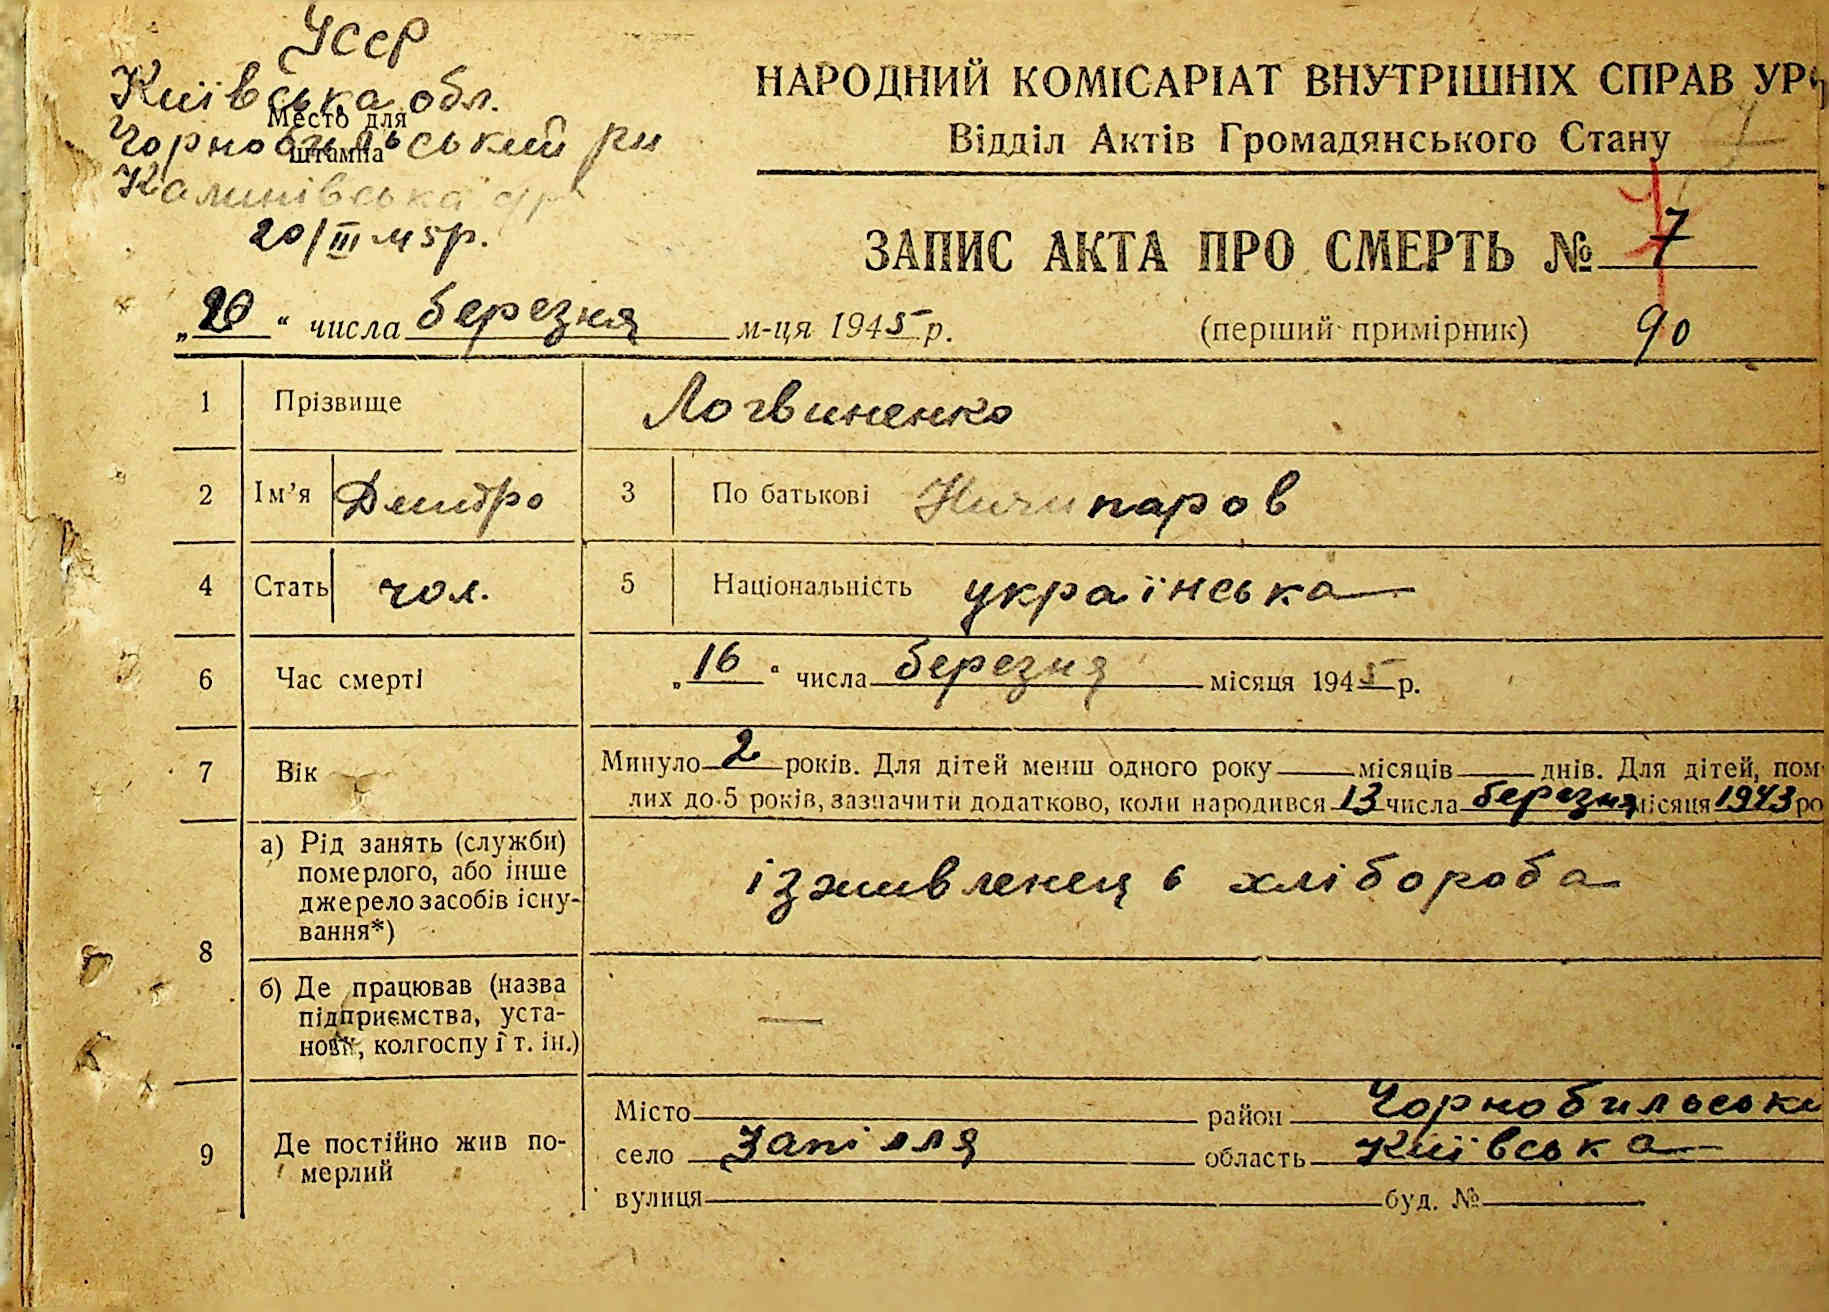 УССР
Київська обл.
Место для
Чорнобильський рн
штампа
Калинівська с/р
20/III 45р.
НАРОДНИЙ КОМІСАРІАТ ВНУТРІШНІХ СПРАВ УРС
Відділ Актів Громадянського Стану
ЗАПИС АКТА ПРО СМЕРТЬ № 7
„20“ числа березня м-ця 1945 р. (перший примірник) 90
1 Прізвище Логвиненко
2 Ім’я Дмитро 3 По батькові Ничипаров
4 Стать чол. 5 Національність українська
6 Час смерті „16“ числа березня місяця 1945 р.
7 Вік Минуло 2 років. Для дітей менш одного року місяців днів. Для дітей, пом
лих до 5 років, зазначити додатково, коли народився 13 числа березня місяця 1943 ро
8 а) Рід занять (служби)
померлого, або інше
джерело засобів існу-
вання*)
ізживленец хлібороба
б) Де працював (назва
підприємства, уста-
нови, колгоспу і т. ін.) —
9 Де постійно жив по-
мерлий
Місто район Чорнобильськи
село Запілля область Київська
вулиця буд. №